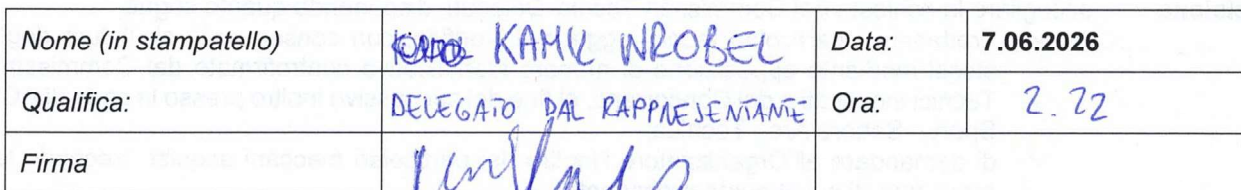 Nome (in stampatello) KAMIL WROBEL Data: 7.06.2026
Qualifica: DELEGATO DAL RAPPRESENTANTE Ora: 2.22
Firma